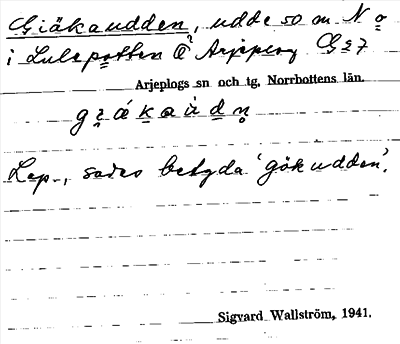 Giäkaudden, udde 50 m. N o
i Lulepotten Arjeplog G 2 7
Arjeplogs sn och tg, Norrbottens län.
Lap., sades betyda 'gökudden'.
Sigvard Wallström, 1941.